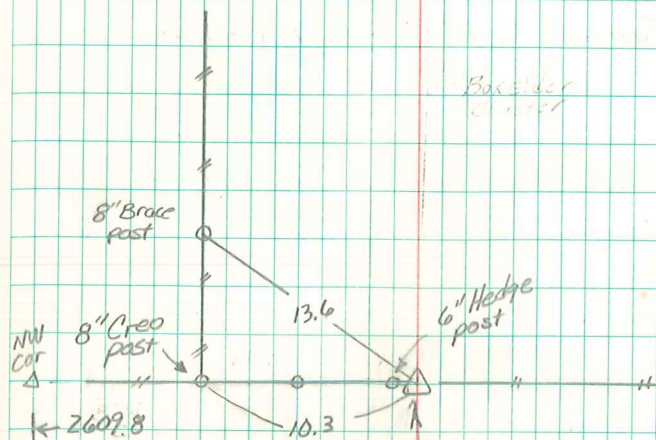 8" Brace
post
13.6
6" Hedge
post
8" Creo
post
NW
cor
2609.8
10.3